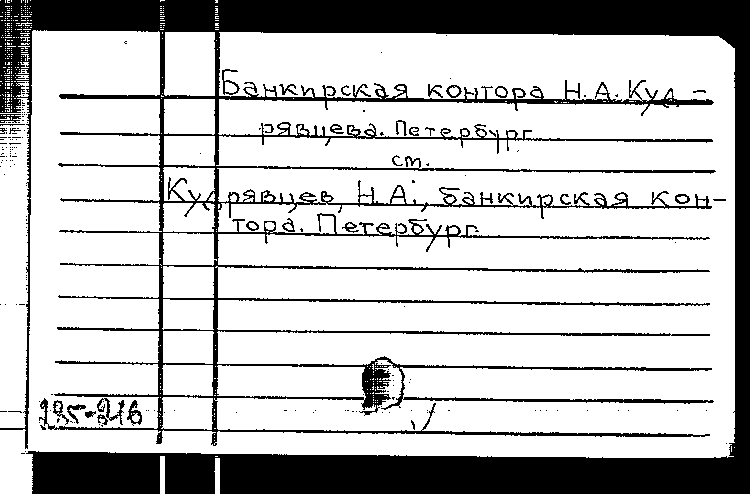 Банкирская контора Н.А. Куд-
рявцева. Петербург
см.
Кудрявцев, Н.А., банкирская кон-
тора. Петербург